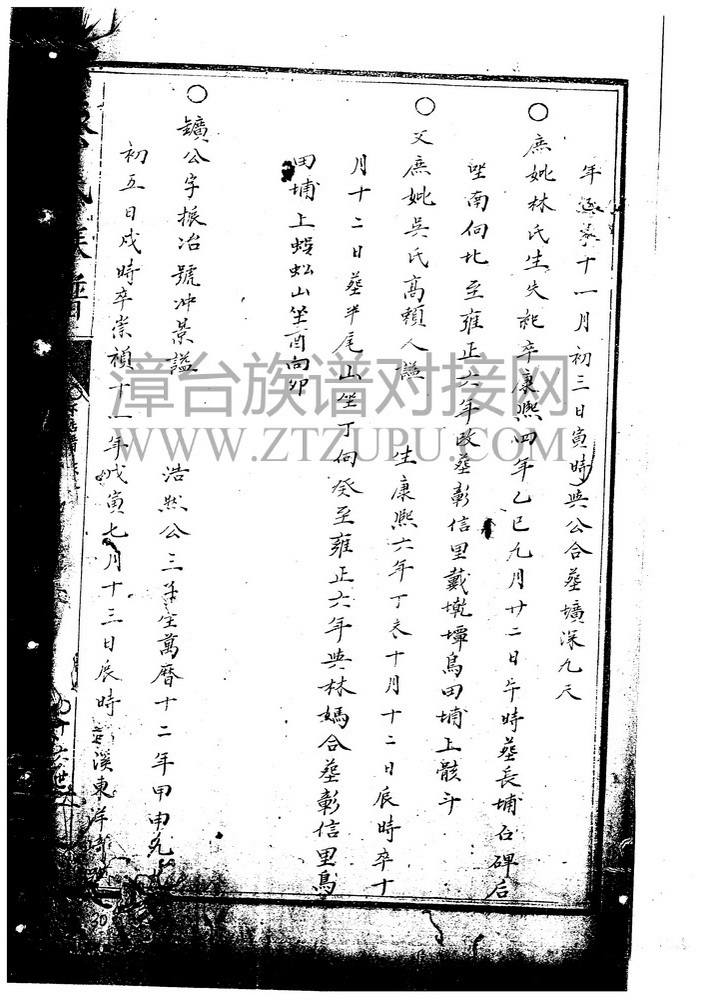 十一月初三日寅時與公合葬壙深九尺
○庶妣林氏生失記卒康熙四年乙巳九月廿二日午時葬長埔石碑后
坐南向北至雍正六年改葬彰信里戴墘墰鳥田埔上骸斗
○又庶妣吳氏高賴人謚 生康熙六年丁未十月十二日辰時卒十
月十二日葬半尾山坐丁向癸至雍正六年與林媽合葬彰信里鳥
田埔上蜈蚣山坐酉向卯
○鑛公字振冶號冲景謚 浩然公三子生萬曆十二年甲申九
初五日戌時卒崇禎十一年戊寅七月十三日辰時 溪東洋
氏族譜
十六世
漳台族谱对接网
WWW.ZTZUPU.COM